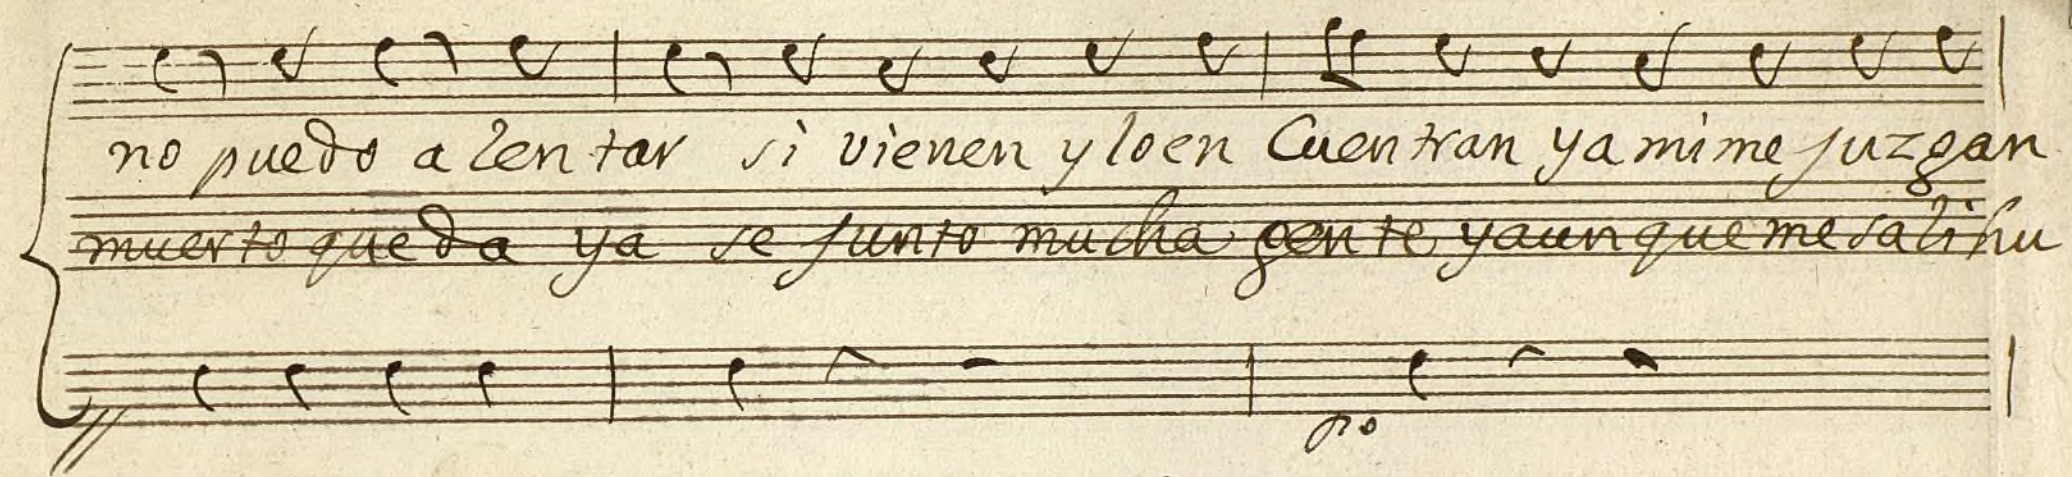 no puedo alentar si vienen y lo en Cuentran ya mi me juzgan
muerto queda ya se junto mucha gente yaunque me sali hu
po